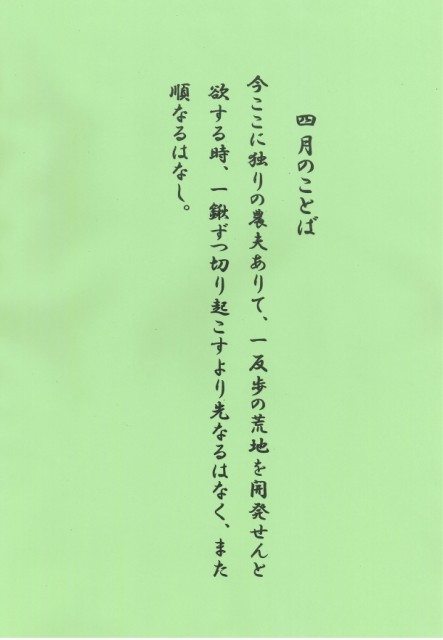 四月のことば
今ここに独りの農夫ありて、一反歩の荒地を開発せんと
欲する時、一鍬ずつ切り起こすより先なるはなく、また
順なるはなし。